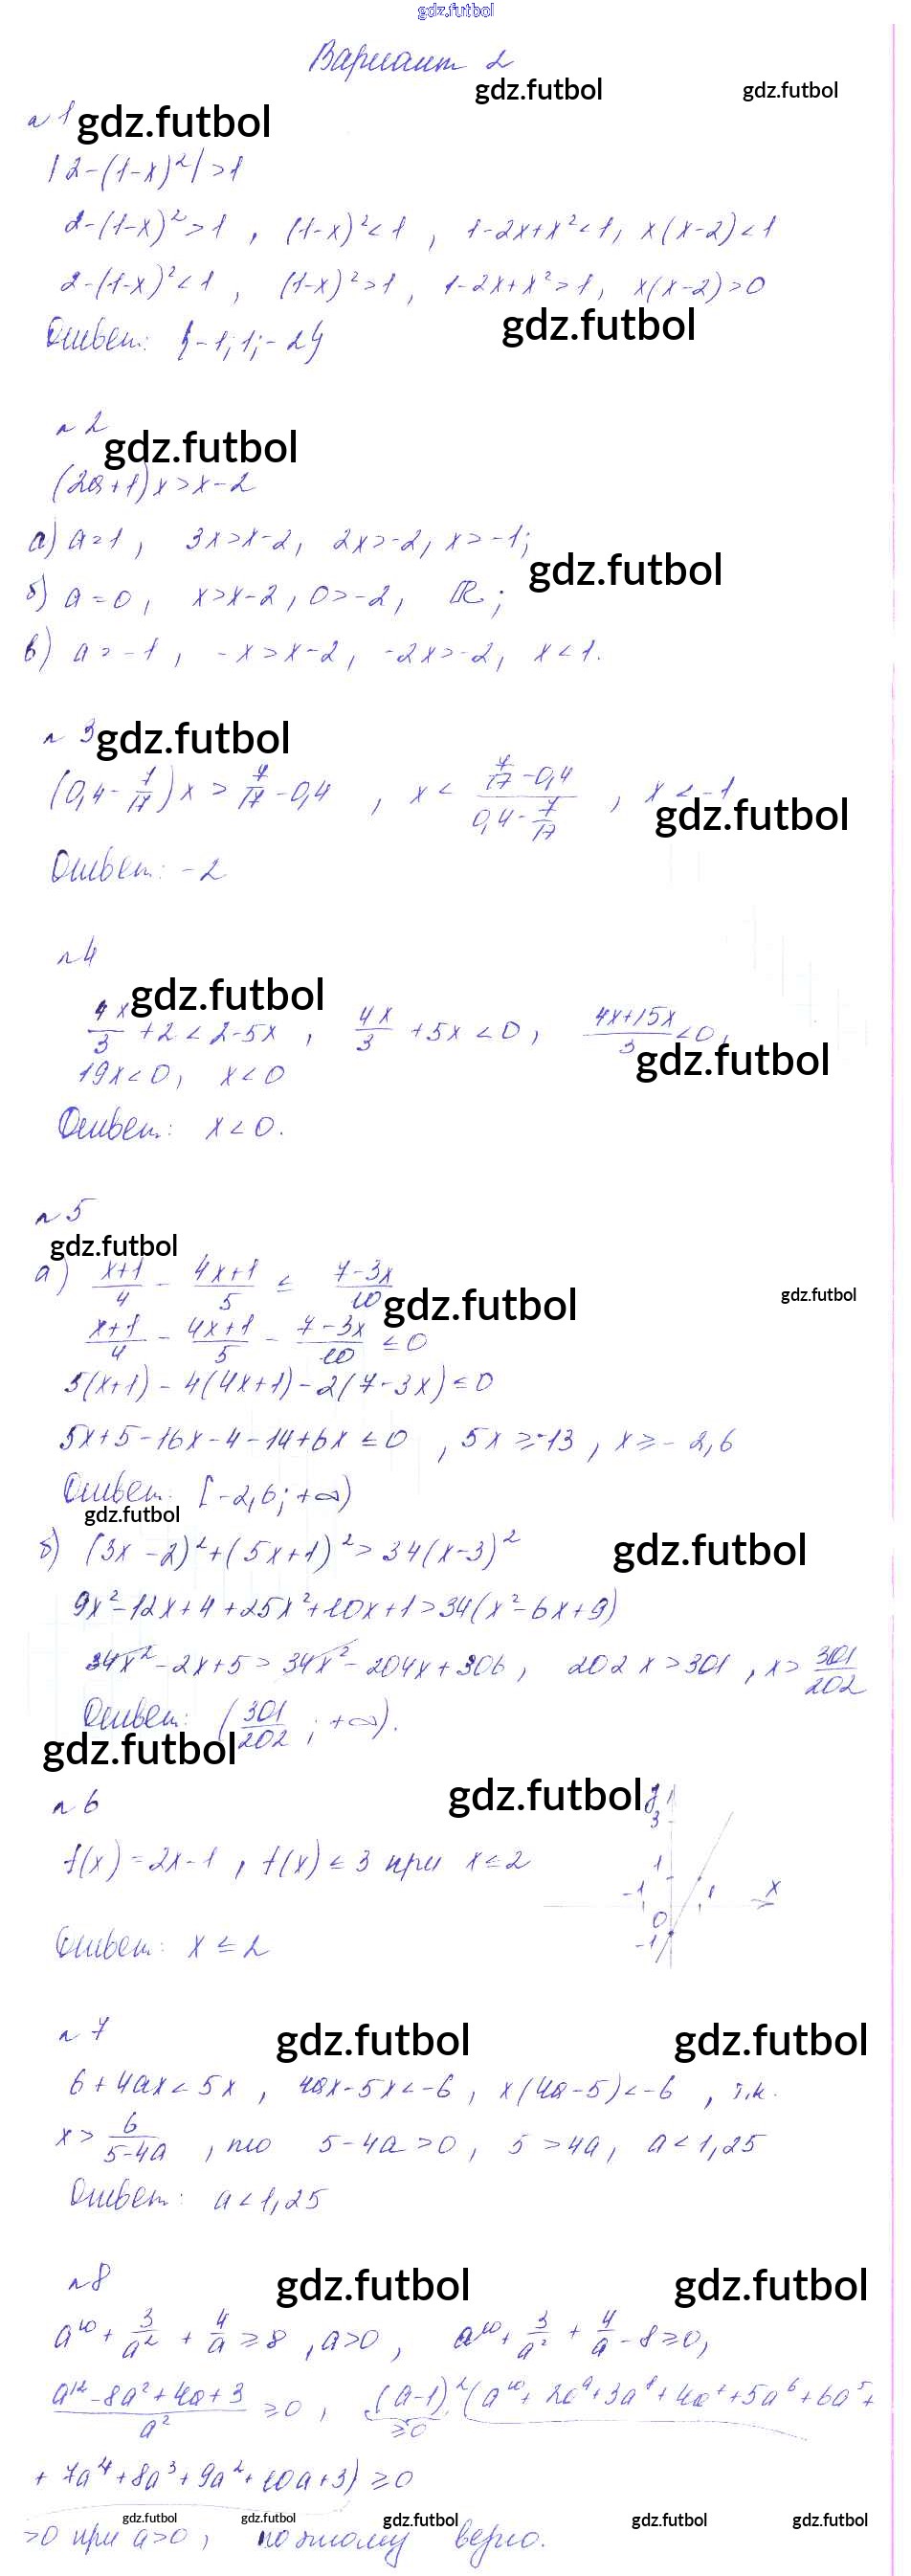 gdz.futbol
Вариант 2
gdz.futbol gdz.futbol
№1 gdz.futbol
|2-(1-x)²|>1
2-(1-x)²>1, (1-x)²<1, 1-2x+x²<1, x(x-2)<1
2-(1-x)²<1, (1-x)²>1, 1-2x+x²>1, x(x-2)>0
Ответ: {-1; 1; -2}
gdz.futbol
№2
gdz.futbol
(2a+1)x>x-2
а) a=1, 3x>x-2, 2x>-2, x>-1;
gdz.futbol
б) a=0, x>x-2, 0>-2, ℝ;
в) a=-1, -x>x-2, -2x>-2, x<1.
№3 gdz.futbol
(0,4-7/17)x > 7/17-0,4, x < (7/17-0,4)/(0,4-7/17), x<-1
gdz.futbol
Ответ: -2
№4
gdz.futbol
4x/3+2<2-5x, 4x/3+5x<0, (4x+15x)/3<0,
gdz.futbol
19x<0, x<0
Ответ: x<0.
№5
gdz.futbol
а) (x+1)/4 - (4x+1)/5 ≤ (7-3x)/10
gdz.futbol gdz.futbol
(x+1)/4 - (4x+1)/5 - (7-3x)/10 ≤0
5(x+1)-4(4x+1)-2(7-3x)≤0
5x+5-16x-4-14+6x≤0, 5x≥-13, x≥-2,6
Ответ: [-2,6; +∞)
gdz.futbol
б) (3x-2)²+(5x+1)²>34(x-3)²
gdz.futbol
9x²-12x+4+25x²+10x+1>34(x²-6x+9)
34x²-2x+5>34x²-204x+306, 202x>301, x>301/202
Ответ: (301/202; +∞).
gdz.futbol
gdz.futbol
№6
y
3
f(x)=2x-1, f(x)≤3 при x≤2
1
-1 1 x
0
-1
Ответ: x≤2
№7
gdz.futbol gdz.futbol
6+4ax<5x, 4ax-5x<-6, x(4a-5)<-6, т.к.
x>6/(5-4a), то 5-4a>0, 5>4a, a<1,25
Ответ: a<1,25
№8
gdz.futbol gdz.futbol
a¹⁰+3/a²+4/a≥8, a>0, a¹⁰+3/a²+4/a-8≥0,
(a¹²-8a²+4a+3)/a²≥0, (a-1)²(a¹⁰+2a⁹+3a⁸+4a⁷+5a⁶+6a⁵+
≥0
+7a⁴+8a³+9a²+10a+3)≥0
gdz.futbol gdz.futbol gdz.futbol gdz.futbol gdz.futbol
>0 при a>0, поэтому верно.